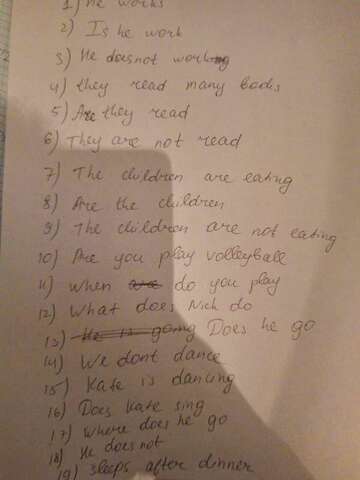 1) He works
2) Is he work
3) He does not work
4) they read many books
5) Are they read
6) They are not read
7) The children are eating
8) Are the children
9) The children are not eating
10) Are you play volleyball
11) When are do you play
12) What does Nick do
13) He is going Does he go
14) We dont dance
15) Kate is dancing
16) Does Kate sing
17) Where does he go
18) He does not
19) Sleeps after dinner